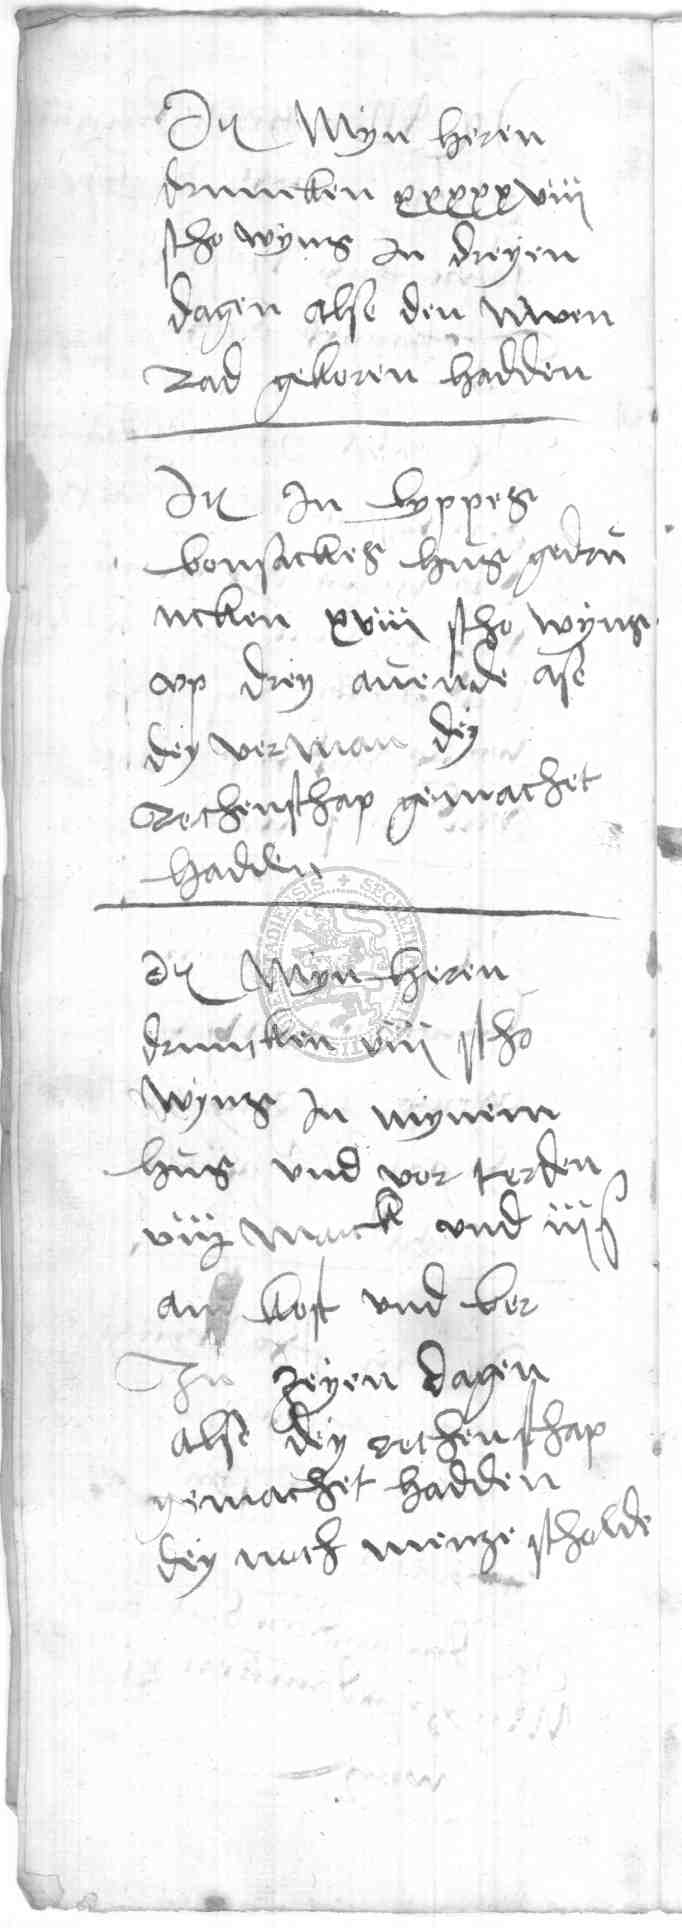 It Myn heren
druncken xxxxxviii
stho wyns in dreyen
dagen alse den nuwen
Rad gekoren hadden
It In lyppes
bonsackes hus gedru
ncken xviii stho wyns
vp drey auende alse
dey verman dey
Rechenschap gemachet
hadden
It Myn heren
druncken viii stho
wyns In mynem
hus vnd vor terden
viij marck vnd iiij ß
an kost vnd ber
In zeyen dagen
alse dey rechenschap
gemachet hadden
dey noch menze scholde